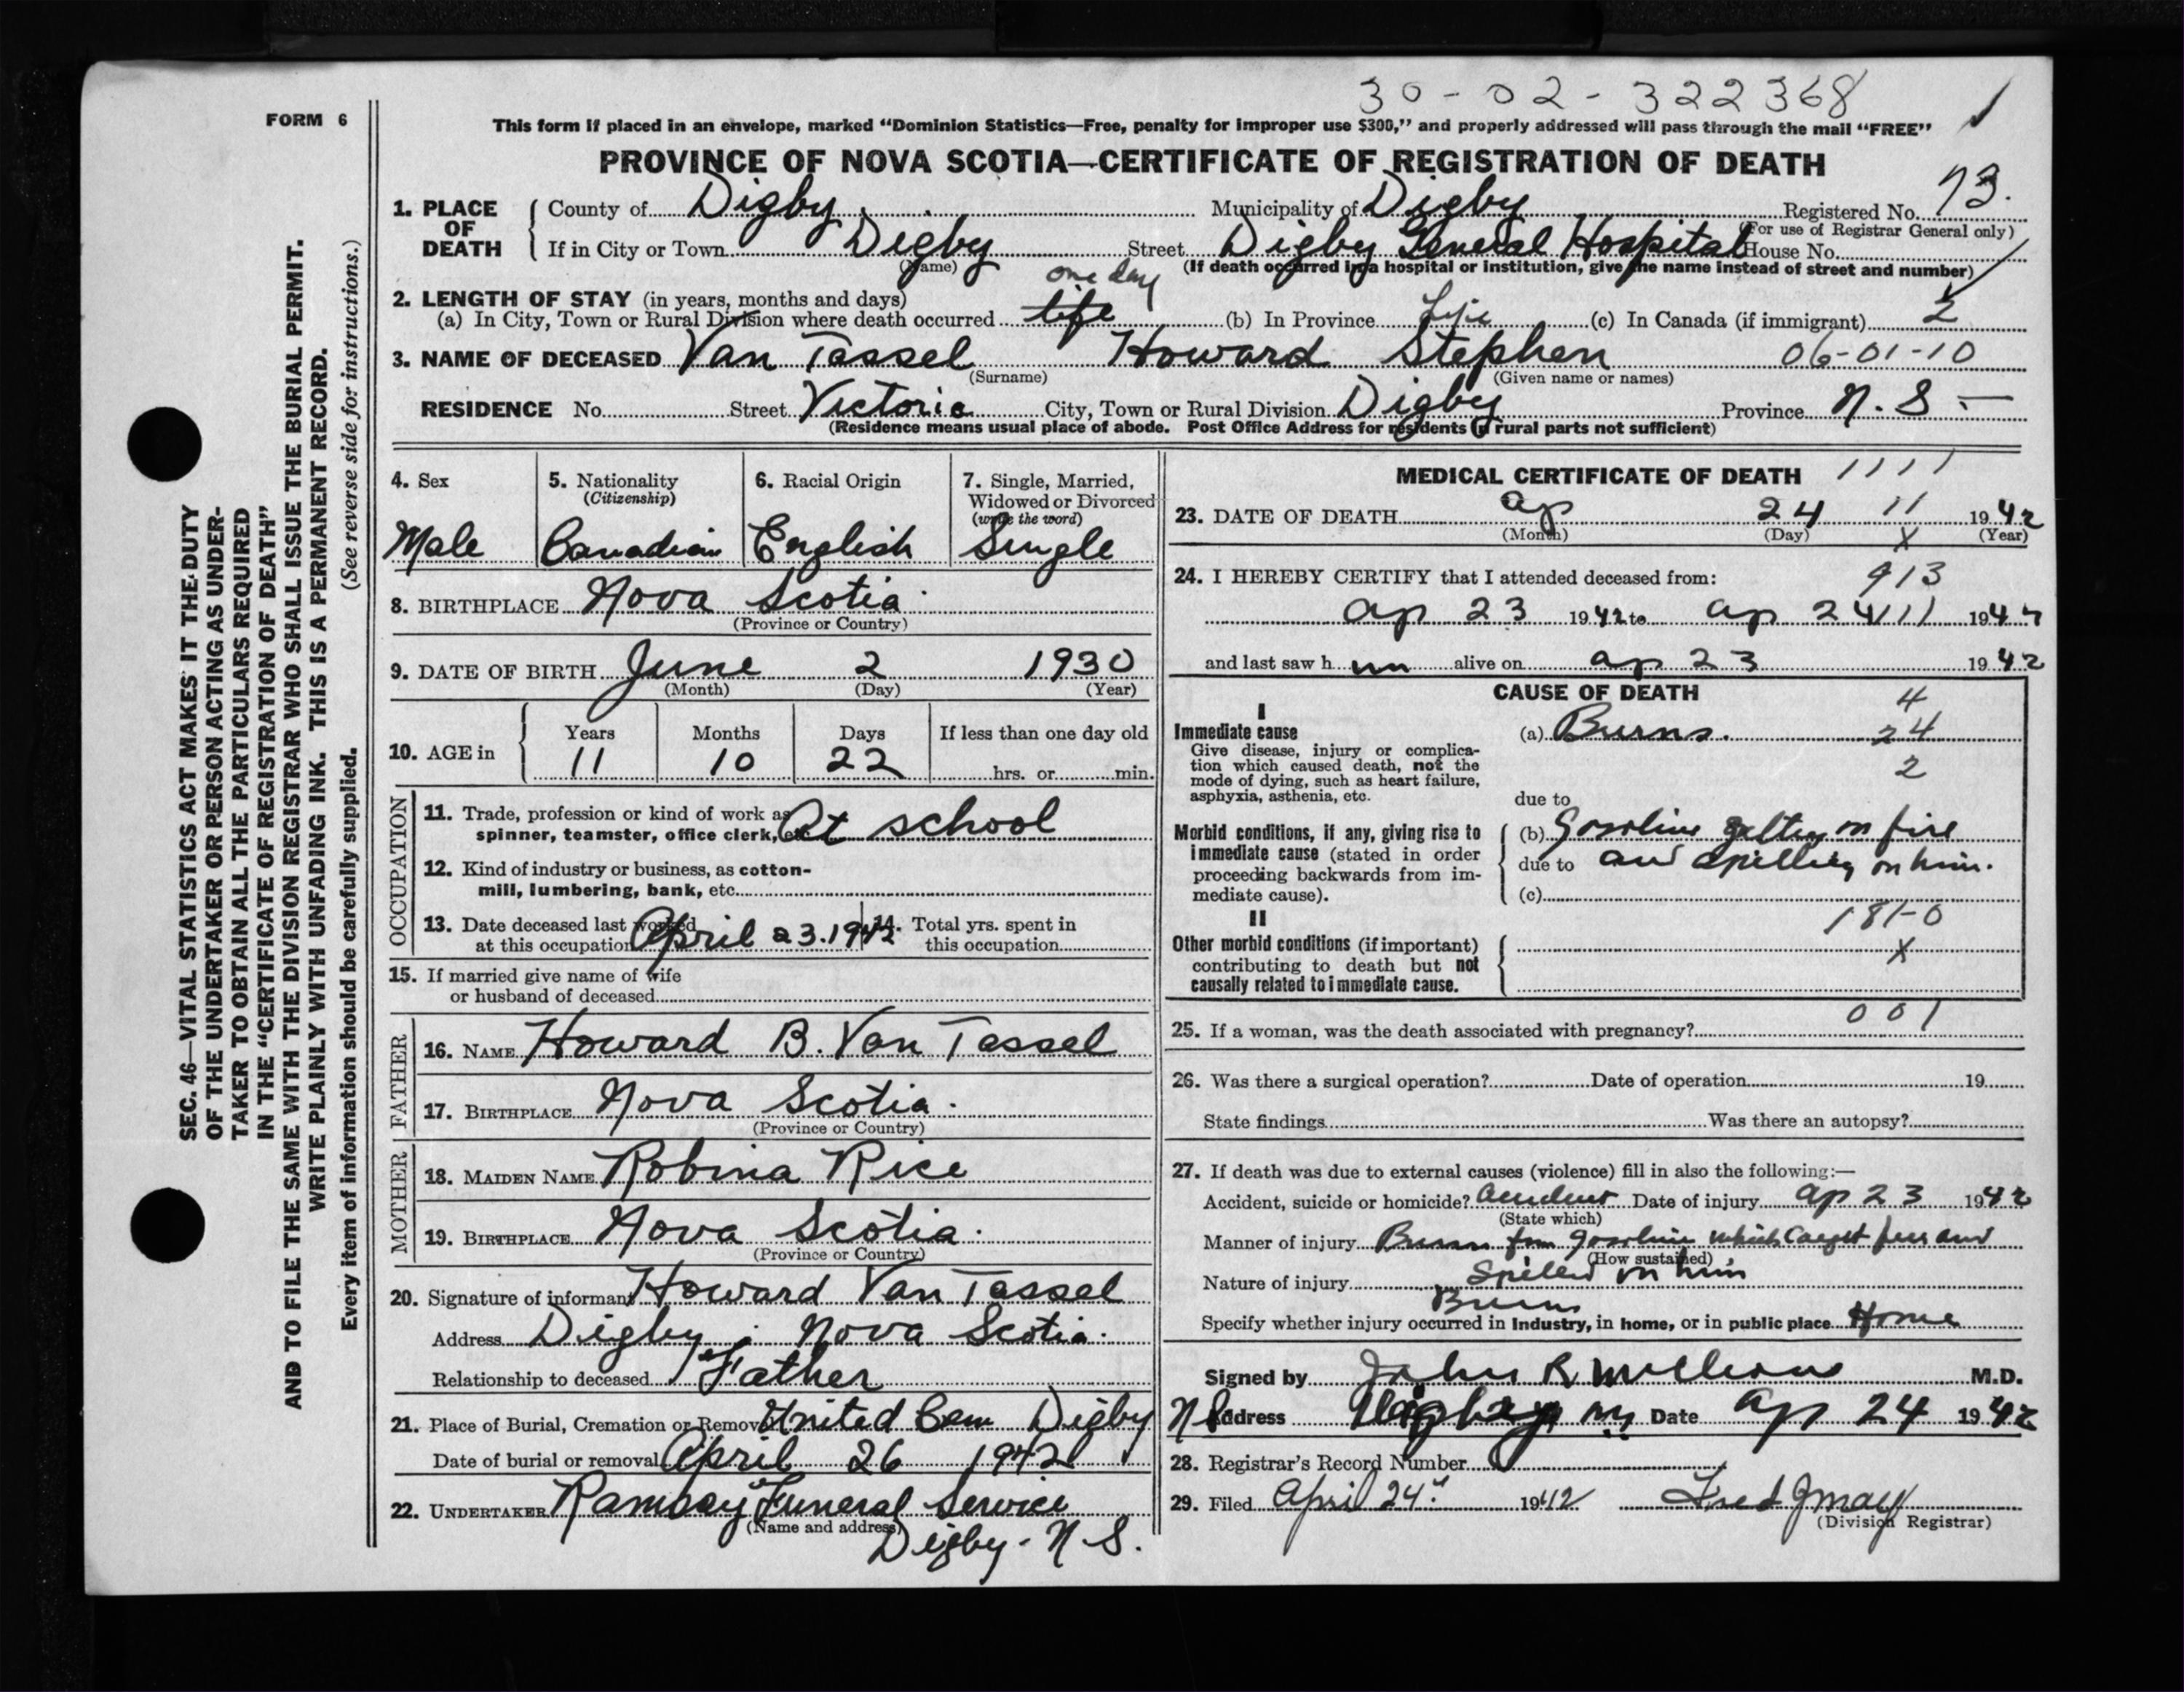 30-02-322368
FORM 6
This form if placed in an envelope, marked “Dominion Statistics—Free, penalty for improper use $300,” and properly addressed will pass through the mail “FREE”
PROVINCE OF NOVA SCOTIA—CERTIFICATE OF REGISTRATION OF DEATH
1. PLACE OF DEATH County of Digby Municipality of Digby Registered No. 73.
(For use of Registrar General only)
If in City or Town Digby Street Digby General Hospital House No.
(Name) (If death occurred in a hospital or institution, give the name instead of street and number)
one day
2. LENGTH OF STAY (in years, months and days)
(a) In City, Town or Rural Division where death occurred life (b) In Province Life (c) In Canada (if immigrant) 2
3. NAME OF DECEASED Van Tassel Howard Stephen 06-01-10
(Surname) (Given name or names)
RESIDENCE No. Street Victoria City, Town or Rural Division Digby Province N.S.-
(Residence means usual place of abode. Post Office Address for residents of rural parts not sufficient)
4. Sex 5. Nationality (Citizenship) 6. Racial Origin 7. Single, Married, Widowed or Divorced (write the word)
Male Canadian English Single
8. BIRTHPLACE Nova Scotia
(Province or Country)
9. DATE OF BIRTH June 2 1930
(Month) (Day) (Year)
10. AGE in Years Months Days If less than one day old
11 10 22 hrs. or min.
OCCUPATION
11. Trade, profession or kind of work as
spinner, teamster, office clerk, etc. At school
12. Kind of industry or business, as cotton-
mill, lumbering, bank, etc.
13. Date deceased last worked at this occupation April 23. 1942 14. Total yrs. spent in this occupation
15. If married give name of wife
or husband of deceased
FATHER
16. NAME Howard B. Van Tassel
17. BIRTHPLACE Nova Scotia.
(Province or Country)
MOTHER
18. MAIDEN NAME Robina Rice
19. BIRTHPLACE Nova Scotia.
(Province or Country)
20. Signature of informant Howard Van Tassel
Address Digby, Nova Scotia.
Relationship to deceased Father
21. Place of Burial, Cremation or Removal United Cem Digby
Date of burial or removal April 26 1942
22. UNDERTAKER Ramsay Funeral Service
(Name and address)
Digby - N S.
MEDICAL CERTIFICATE OF DEATH 1111
23. DATE OF DEATH Ap 24 11 1942
(Month) (Day) X (Year)
24. I HEREBY CERTIFY that I attended deceased from: 913
Ap 23 1942 to Ap 24 111 1942
and last saw h im alive on Ap 23 1942
CAUSE OF DEATH 4
I
Immediate cause (a) Burns. 24
Give disease, injury or complica-
tion which caused death, not the 2
mode of dying, such as heart failure,
asphyxia, asthenia, etc. due to
Morbid conditions, if any, giving rise to (b) Gasoline getting on fire
immediate cause (stated in order due to and spilling on him.
proceeding backwards from im-
mediate cause). (c)
II 181-0
Other morbid conditions (if important) X
contributing to death but not
causally related to immediate cause.
001
25. If a woman, was the death associated with pregnancy?
26. Was there a surgical operation? Date of operation 19
State findings Was there an autopsy?
27. If death was due to external causes (violence) fill in also the following:—
Accident, suicide or homicide? Accident Date of injury Ap 23 1942
(State which)
Manner of injury Burns from gasoline which caught fire and
(How sustained)
spilled on him
Nature of injury
Burns
Specify whether injury occurred in industry, in home, or in public place Home
Signed by John R M.D.
N S Address Digby Date Ap 24 1942
28. Registrar's Record Number
29. Filed April 24 1942 Fred J May
(Division Registrar)
SEC. 46—VITAL STATISTICS ACT MAKES IT THE DUTY
OF THE UNDERTAKER OR PERSON ACTING AS UNDER-
TAKER TO OBTAIN ALL THE PARTICULARS REQUIRED
IN THE “CERTIFICATE OF REGISTRATION OF DEATH”
AND TO FILE THE SAME WITH THE DIVISION REGISTRAR WHO SHALL ISSUE THE BURIAL PERMIT.
WRITE PLAINLY WITH UNFADING INK. THIS IS A PERMANENT RECORD.
Every item of information should be carefully supplied. (See reverse side for instructions.)